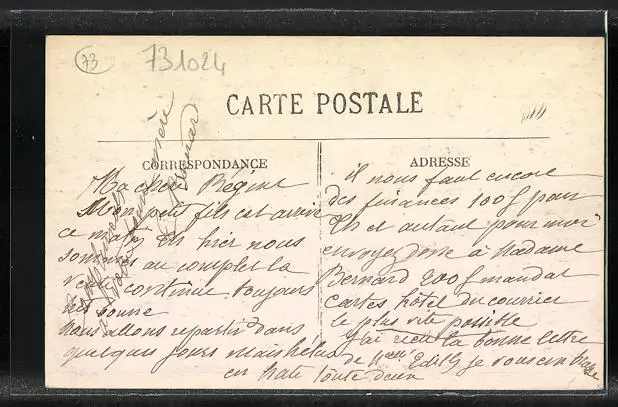 73
731024
CARTE POSTALE
CORRESPONDANCE
Ma chère Régine
Mon petit fils est arrivé
ce matin hier nous
sommes au complet la
continue toujours
bonne
Nous allons repartir dans
quelques jours mais hélas
ADRESSE
il nous faut encore
des finances 100f pour
Th et autant pour moi
envoyez donc à Madame
Bernard 200f mandat
cartes hôtel du courrier
le plus vite possible
J'ai reçu la bonne lettre
de Edith je vous embrasse
en hate toute deux